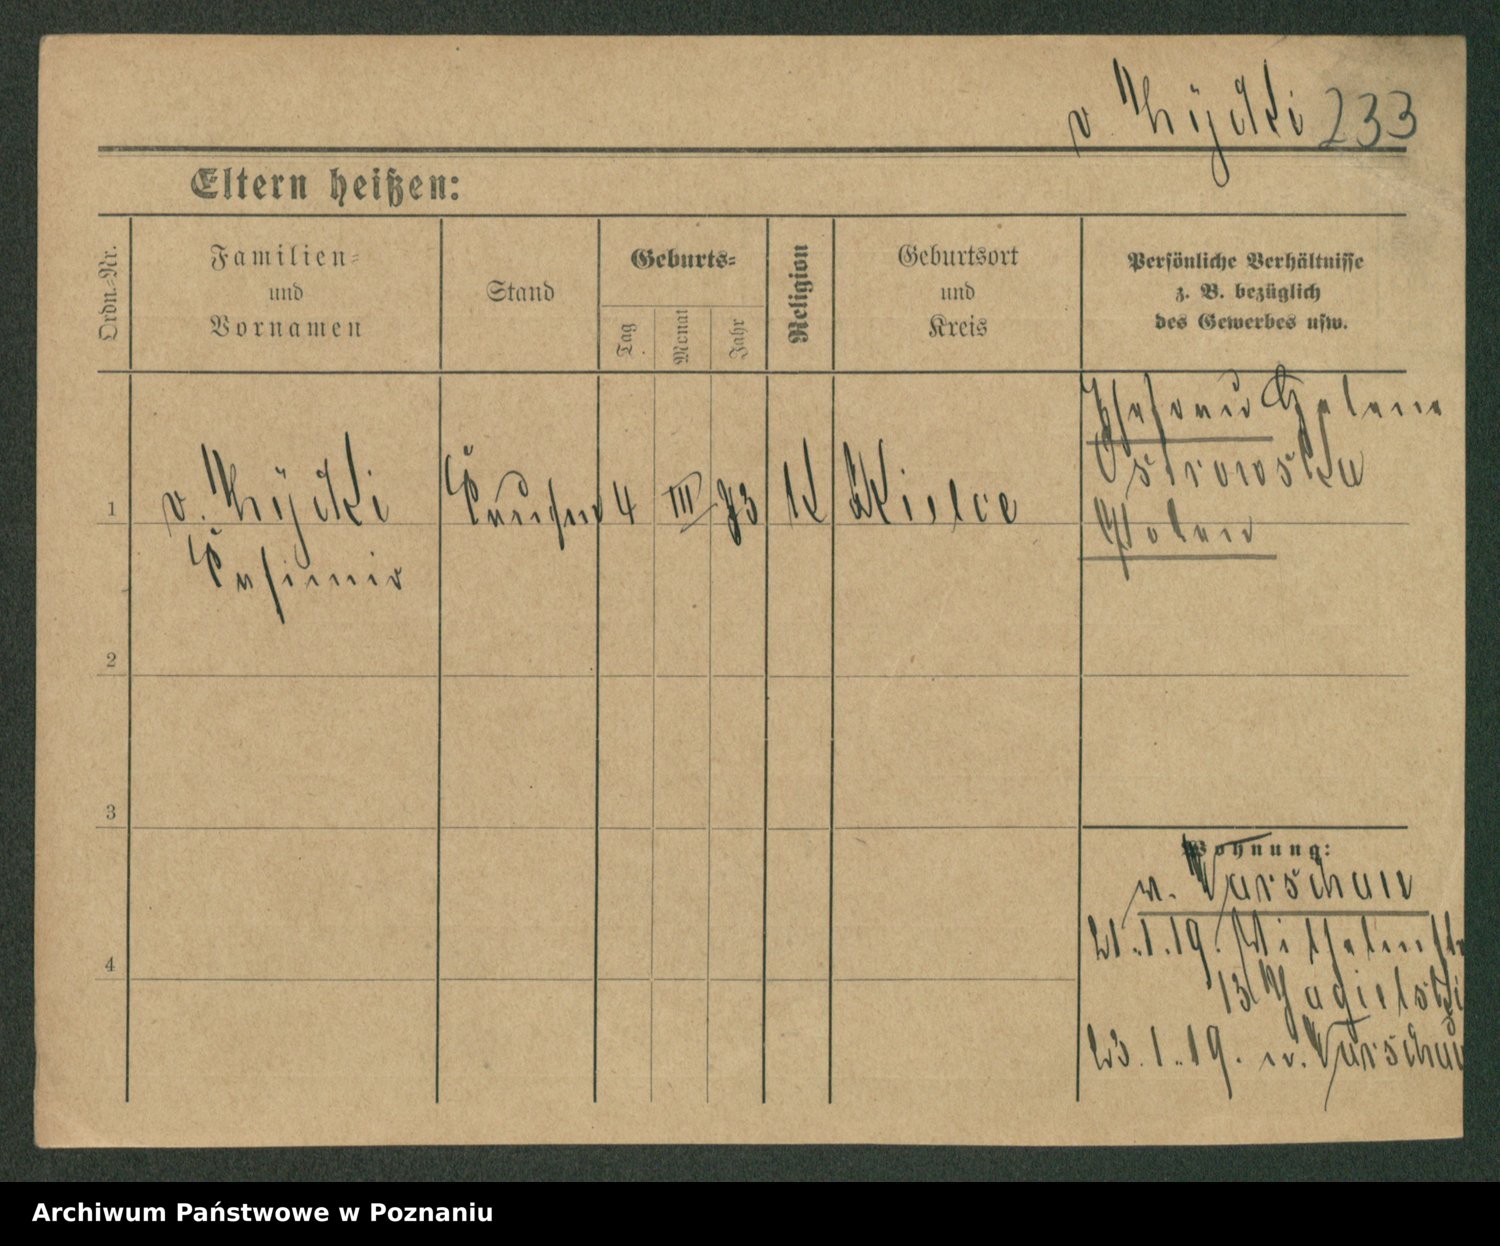 v. Zÿcki 233
Eltern heißen:
Ordn.-Nr.
Familien-
und
Vornamen
Stand
Geburts-
Tag
Monat
Jahr
Religion
Geburtsort
und
Kreis
Persönliche Verhältnisse
z. B. bezüglich
des Gewerbes usw.
Ehefrau Helene
Ostrowska
Polen
1
v. Zÿcki
Casimir
4 III 73 K Kielce
2
3
4
Wohnung:
n. Warschau
21.1.19. Wilhelmstr
13
23.1.19. n. Warschau
Archiwum Państwowe w Poznaniu